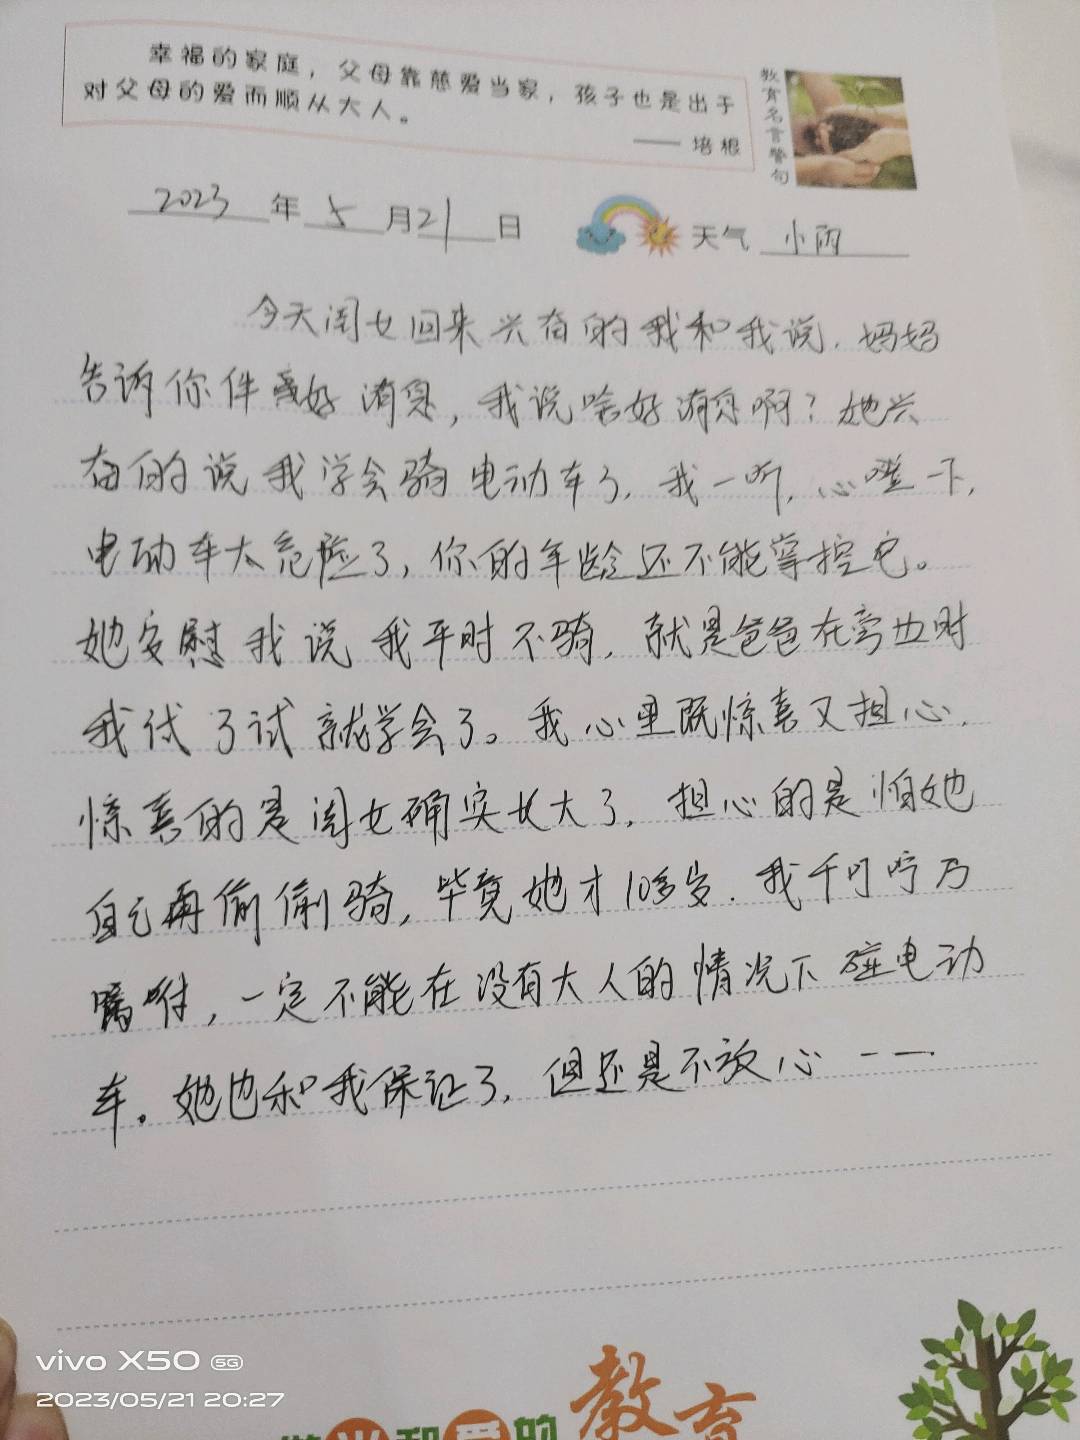 幸福的家庭，父母靠慈爱当家，孩子也是出于
对父母的爱而顺从大人。
—— 培根
教育名言警句
2023 年 5 月 21 日
天气 小雨
今天闺女回来兴奋的我和我说，妈妈
告诉你件好消息，我说啥好消息啊？她兴
奋的说我学会骑电动车了，我一听，心噔一下，
电动车太危险了，你的年龄还不能掌控它。
她安慰我说我平时不骑，就是爸爸在旁边时
我试了试就学会了。我心里既惊喜又担心，
惊喜的是闺女确实长大了，担心的是怕她
自己再偷偷骑，毕竟她才10多岁．我千叮咛万
嘱咐，一定不能在没有大人的情况下碰电动
车。她也和我保证了，但还是不放心……
vivo X50 5G
2023/05/21 20:27
和爱的教育